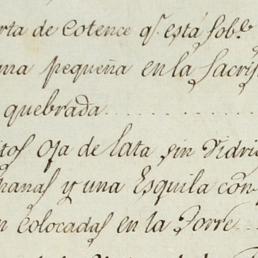 rta de Cotence q.e está sob.e
ma pequeña en la Sacris
quebrada..........
tos Oja de lata, sin Vidri
panas y una Esquila con
n colocadas en la Torre..